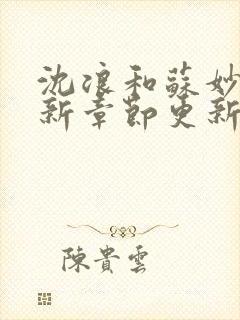 沈浪和蘇妙
新章節更新
陳貴雲